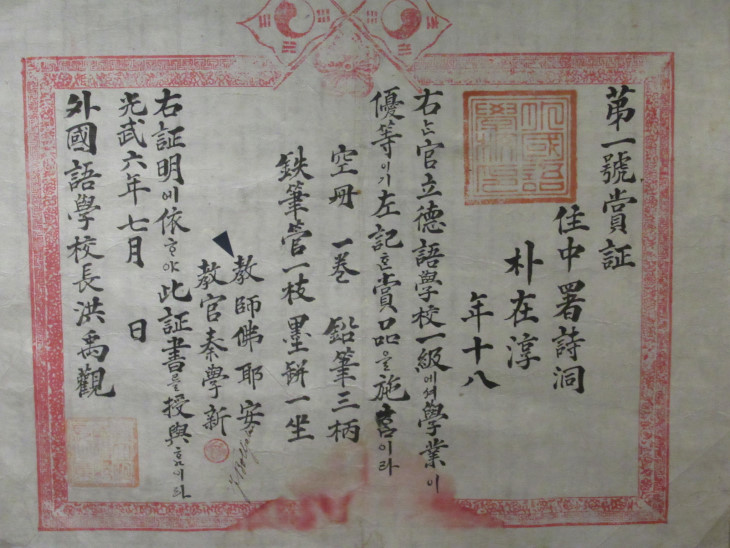 第一號賞証
住中署詩洞
朴在淳
年十八
右는官立德語學校一級에셔學業이
優等이기左記한賞品을施흠이라
空冊 一卷 鉛筆三柄
鉄筆管一枝墨餅一坐
教師佛耶安
教官秦學新
右証明에依ᄒᆞ야此証書를授與홈이라
光武六年七月 日
外國語學校長洪禹觀